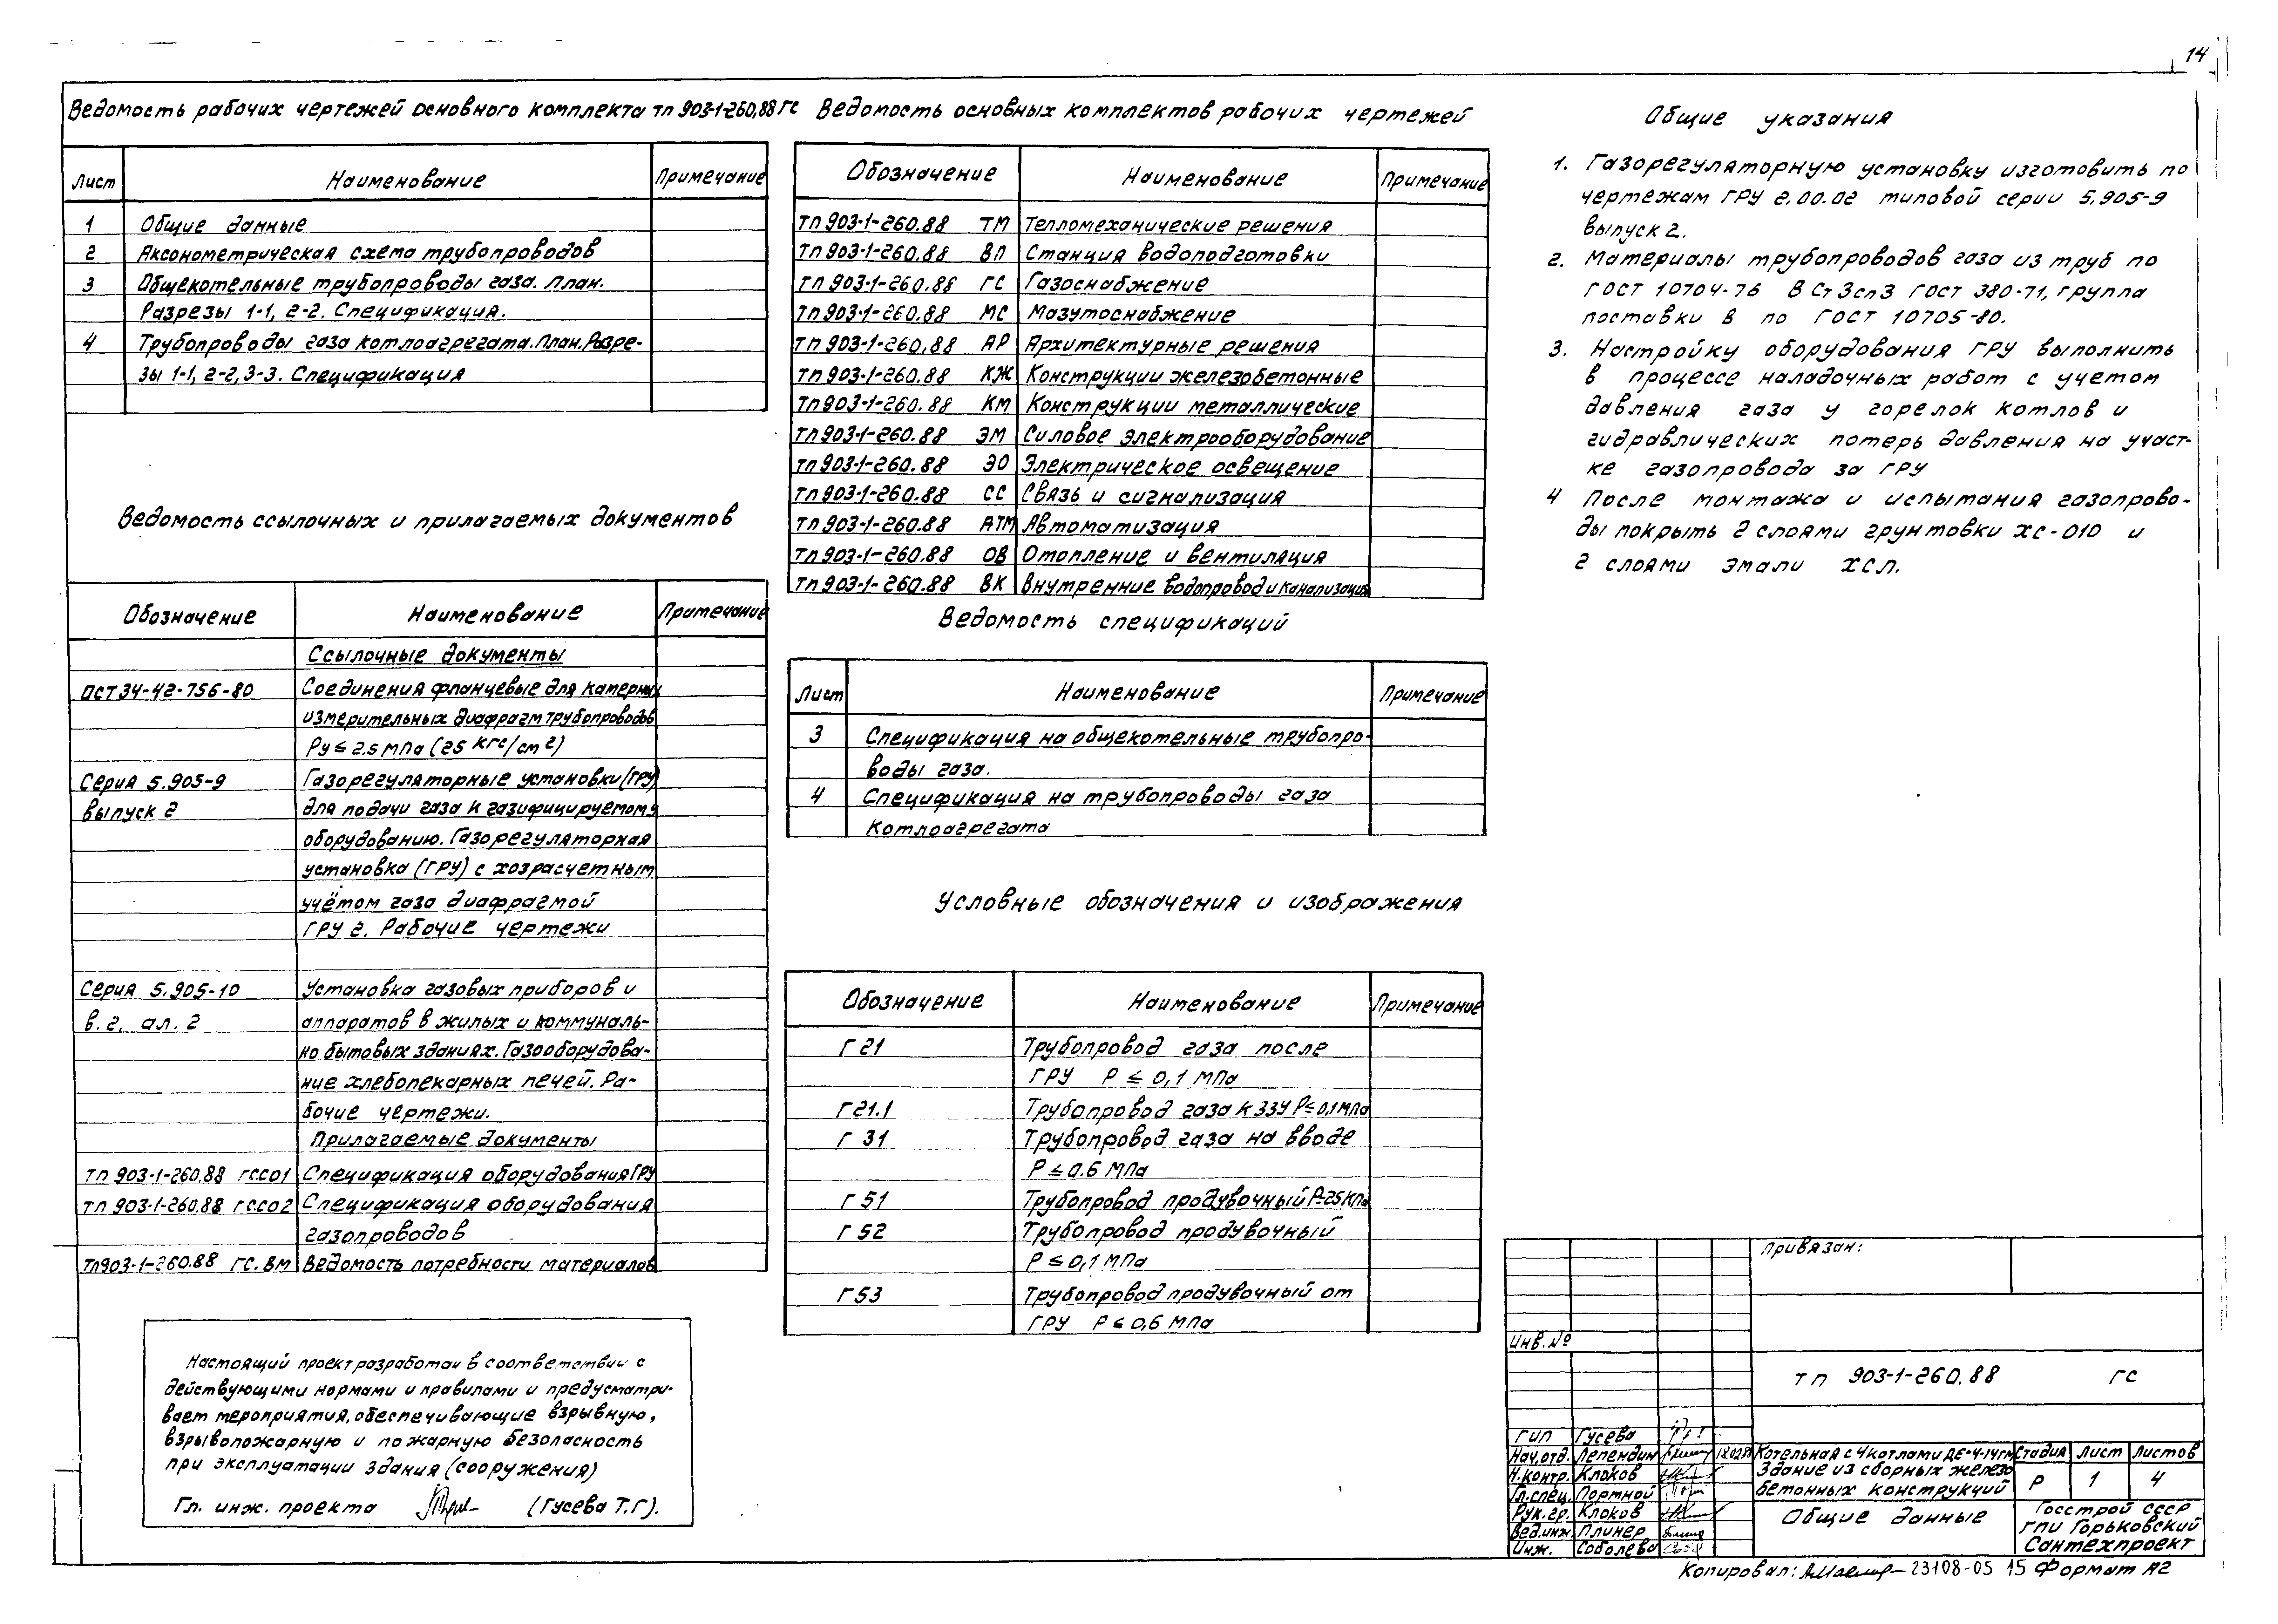 14
Ведомость рабочих чертежей основного комплекта тп 903-1-260,88 ГС
Лист Наименование Примечание
1 Общие данные
2 Аксонометрическая схема трубопроводов
3 Общекотельные трубопроводы газа. План.
Разрезы 1-1, 2-2. Спецификация.
4 Трубопроводы газа котлоагрегата. План. Разре-
зы 1-1, 2-2, 3-3. Спецификация
Ведомость ссылочных и прилагаемых документов
Обозначение Наименование Примечание
Ссылочные документы
ОСТ 34-42-756-80 Соединения фланцевые для камерных
измерительных диафрагм трубопроводов
Ру ≤ 2.5 МПа (25 кгс/см²)
Серия 5.905-9 Газорегуляторные установки (ГРУ)
выпуск 2 для подачи газа к газифицируемому
оборудованию. Газорегуляторная
установка (ГРУ) с хозрасчетным
учётом газа диафрагмой
ГРУ 2. Рабочие чертежи
Серия 5.905-10 Установка газовых приборов и
в. 2. ал. 2 аппаратов в жилых и коммуналь-
но бытовых зданиях. Газооборудова-
ние хлебопекарных печей. Ра-
бочие чертежи.
Прилагаемые документы
тп 903-1-260.88 ГС.СО1 Спецификация оборудования ГРУ
тп 903-1-260.88 ГС.СО2 Спецификация оборудования
газопроводов
тп 903-1-260.88 ГС.ВМ Ведомость потребности материалов
Настоящий проект разработан в соответствии с
действующими нормами и правилами и предусматри-
вает мероприятия, обеспечивающие взрывную,
взрывопожарную и пожарную безопасность
при эксплуатации здания (сооружения)
Гл. инж. проекта (Гусева Т.Г).
Ведомость основных комплектов рабочих чертежей
Обозначение Наименование Примечание
тп 903-1-260.88 ТМ Тепломеханические решения
тп 903-1-260.88 ВП Станция водоподготовки
тп 903-1-260.88 ГС Газоснабжение
тп 903-1-260.88 МС Мазутоснабжение
тп 903-1-260.88 АР Архитектурные решения
тп 903-1-260.88 КЖ Конструкции железобетонные
тп 903-1-260.88 КМ Конструкции металлические
тп 903-1-260.88 ЭМ Силовое электрооборудование
тп 903-1-260.88 ЭО Электрическое освещение
тп 903-1-260.88 СС Связь и сигнализация
тп 903-1-260.88 АТМ Автоматизация
тп 903-1-260.88 ОВ Отопление и вентиляция
тп 903-1-260.88 ВК Внутренние водопровод и канализация
Ведомость спецификаций
Лист Наименование Примечание
3 Спецификация на общекотельные трубопро-
воды газа.
4 Спецификация на трубопроводы газа
котлоагрегата
Условные обозначения и изображения
Обозначение Наименование Примечание
Г21 Трубопровод газа после
ГРУ Р ≤ 0,1 МПа
Г21.1 Трубопровод газа к ЗЗУ Р≤0,1 МПа
Г 31 Трубопровод газа на вводе
Р ≤ 0.6 МПа
Г 51 Трубопровод продувочный Р=25 КПа
Г 52 Трубопровод продувочный
Р ≤ 0,1 МПа
Г53 Трубопровод продувочный от
ГРУ Р ≤ 0,6 МПа
Общие указания
1. Газорегуляторную установку изготовить по
чертежам ГРУ 2.00.02 типовой серии 5.905-9
выпуск 2.
2. Материалы трубопроводов газа из труб по
ГОСТ 10704-76 В Ст 3сп3 ГОСТ 380-71, группа
поставки В по ГОСТ 10705-80.
3. Настройку оборудования ГРУ выполнить
в процессе наладочных работ с учетом
давления газа у горелок котлов и
гидравлических потерь давления на участ-
ке газопровода за ГРУ
4 После монтажа и испытания газопрово-
ды покрыть 2 слоями грунтовки хс-010 и
2 слоями эмали хсл.
Привязан:
Инв. №
тп 903-1-260.88 ГС
ГИП Гусева
Нач.отд. Лепендин
Н.контр. Клоков
Гл.спец. Портной
Рук.гр. Клоков
Вед.инж. Плинер
Инж. Соболева
Котельная с 4 котлами ДЕ-4-14гм
Здание из сборных железо
бетонных конструкций
Стадия Лист Листов
Р 1 4
Общие данные
Госстрой СССР
ГПИ Горьковский
Сантехпроект
Копировал: 23108-05 15 Формат А2